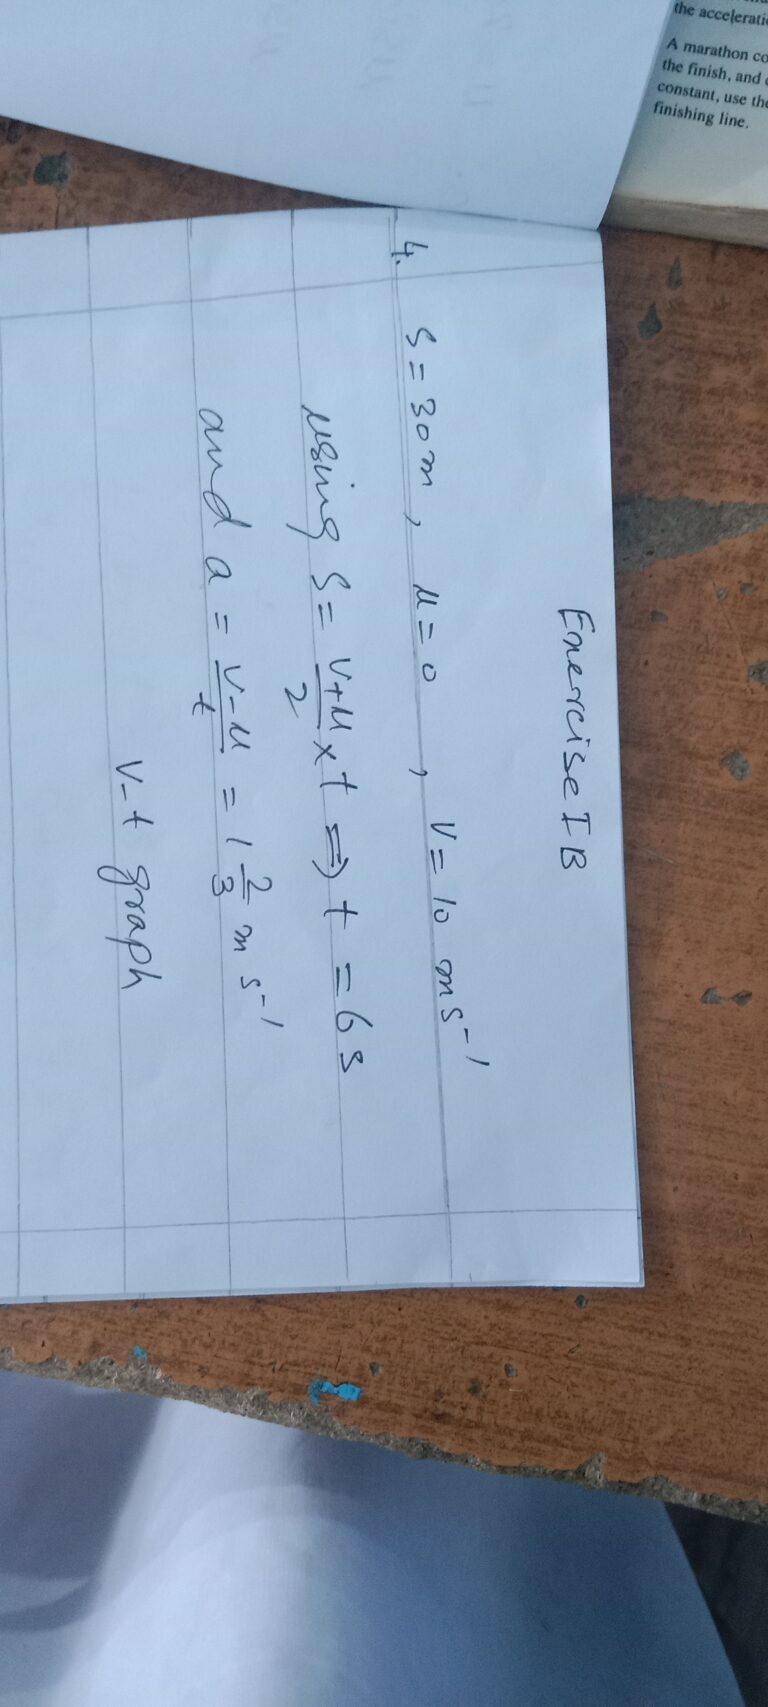 the accelerati
A marathon co
the finish, and
constant, use the
finishing line.
Exercise I B
4. S = 30 m , u = 0 , V = 10 m s⁻¹
using S = v+u/2 × t ⇒ t = 6 s
and a = v-u/t = 1 2/3 m s⁻¹
v-t graph